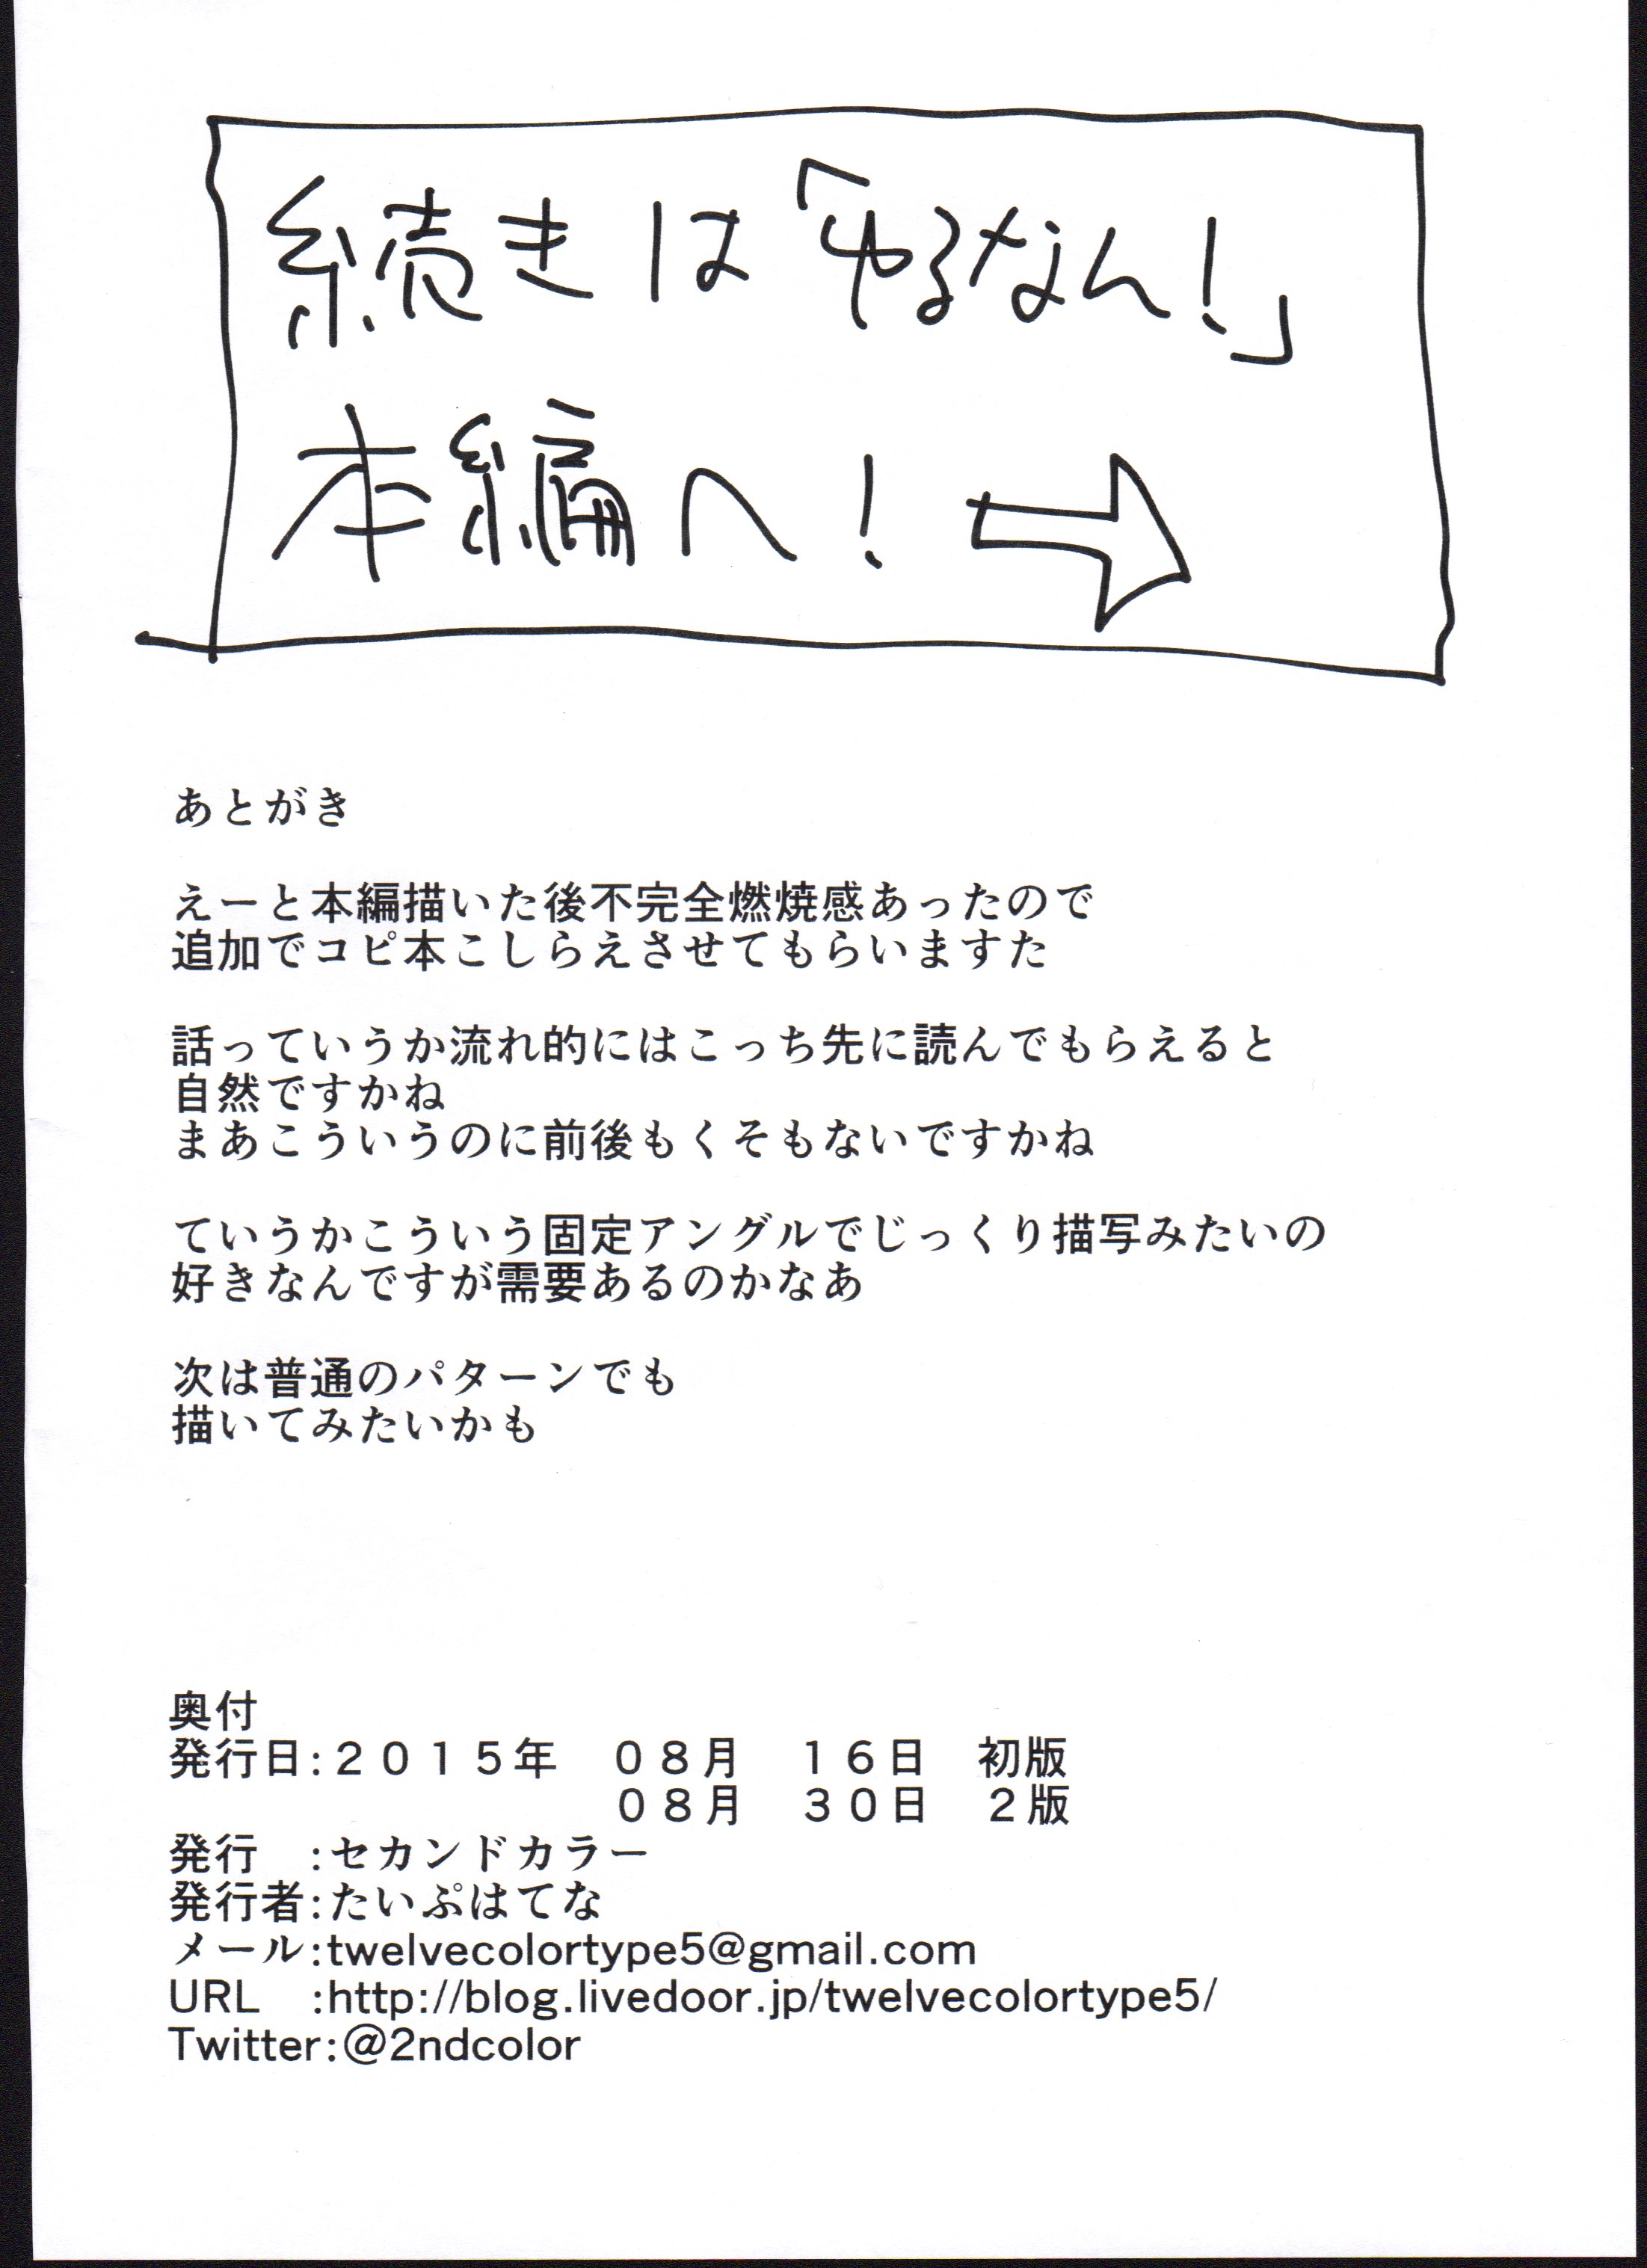 続きは「ゆるなん！」
本編へ！
あとがき
えーと本編描いた後不完全燃焼感あったので
追加でコピ本こしらえさせてもらいますた
話っていうか流れ的にはこっち先に読んでもらえると
自然ですかね
まあこういうのに前後もくそもないですかね
ていうかこういう固定アングルでじっくり描写みたいの
好きなんですが需要あるのかなあ
次は普通のパターンでも
描いてみたいかも
奥付
発行日:２０１５年　０８月　１６日　初版
０８月　３０日　２版
発行　:セカンドカラー
発行者:たいぷはてな
メール:twelvecolortype5@gmail.com
URL　:http://blog.livedoor.jp/twelvecolortype5/
Twitter:@2ndcolor